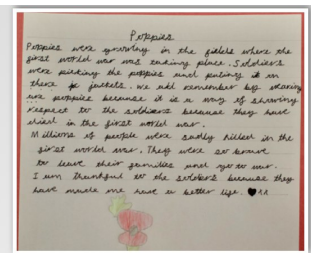 Poppies
Poppies were growing in the fields where the
first world war was taking place. Soldiers
were picking the poppies and puting it in
there jackets. we all remember by wearing
poppies because it is a way of showing
respect to the soldiers because they have
died in the first world war.
Millions of people were sadly killed in the
first world war. They were so brave
to leave their families and go to war.
I am thankful to the soldiers because they
have made me have a better life.